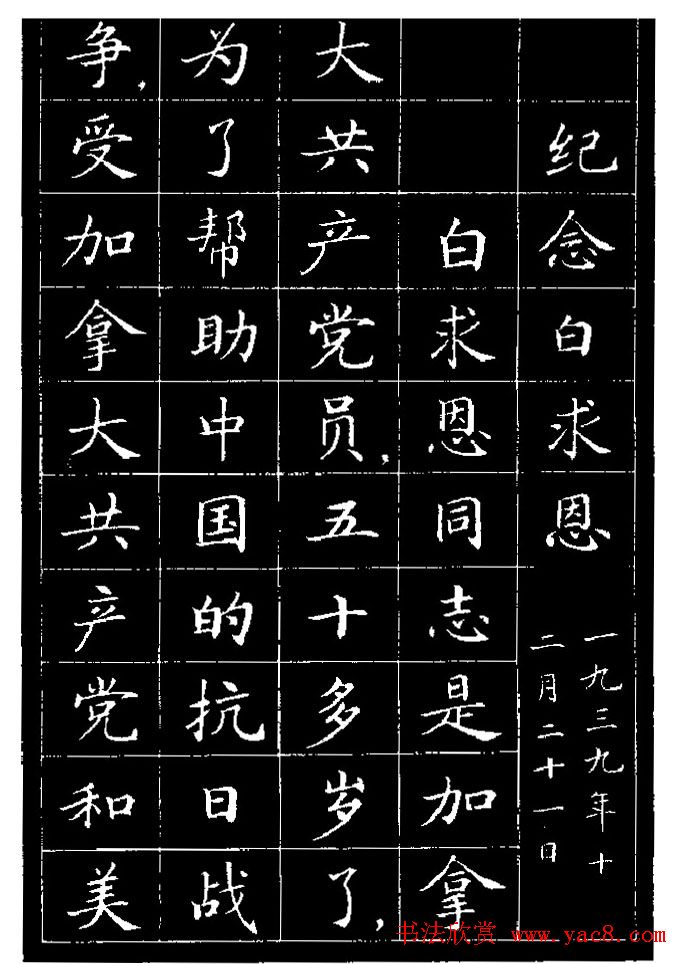 纪念白求恩
一九三九年十
二月二十一日
白求恩同志是加拿
大共产党员，五十多岁了，
为了帮助中国的抗日战
争，受加拿大共产党和美
书法欣赏 www.yac8.com